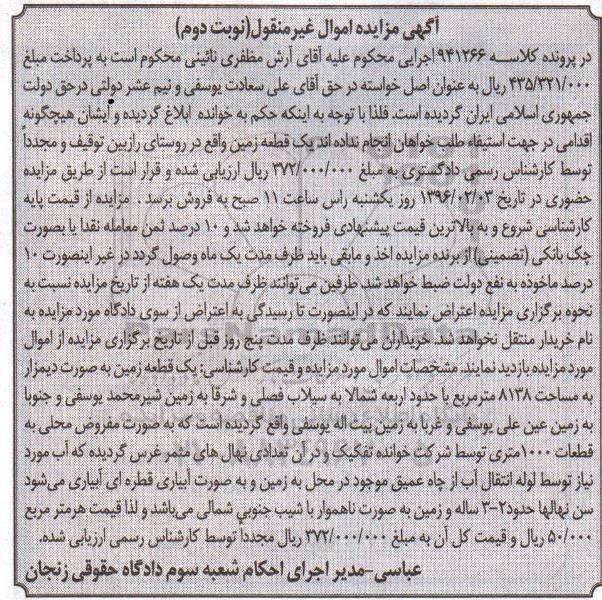 آگهی مزایده اموال غیر منقول(نوبت دوم)
در پرونده کلاسه ۹۴۱۲۶۶ اجرایی محکوم علیه آقای آرش مظفری نائینی محکوم است به پرداخت مبلغ
۴۳۵/۳۲۱/۰۰۰ ریال به عنوان اصل خواسته در حق آقای علی سعادت یوسفی و نیم عشر دولتی درحق دولت
جمهوری اسلامی ایران گردیده است. فلذا با توجه به اینکه حکم به خوانده ابلاغ گردیده و ایشان هیچگونه
اقدامی در جهت استیفاء طلب خواهان انجام نداده اند یک قطعه زمین واقع در روستای رازبین توقیف و مجدداً
توسط کارشناس رسمی دادگستری به مبلغ ۳۷۲/۰۰۰/۰۰۰ ریال ارزیابی شده و قرار است از طریق مزایده
حضوری در تاریخ ۱۳۹۶/۰۲/۰۳ روز یکشنبه راس ساعت ۱۱ صبح به فروش برسد . مزایده از قیمت پایه
کارشناسی شروع و به بالاترین قیمت پیشنهادی فروخته خواهد شد و ۱۰ درصد ثمن معامله نقدا یا بصورت
چک بانکی (تضمینی) از برنده مزایده اخذ و مابقی باید ظرف مدت یک ماه وصول گردد در غیر اینصورت ۱۰
درصد ماخوذه به نفع دولت ضبط خواهد شد. طرفین می‌توانند ظرف مدت یک هفته از تاریخ مزایده نسبت به
نحوه برگزاری مزایده اعتراض نمایند که در اینصورت تا رسیدگی به اعتراض از سوی دادگاه مورد مزایده به
نام خریدار منتقل نخواهد شد. خریداران می‌توانند ظرف مدت پنج روز قبل از تاریخ برگزاری مزایده از اموال
مورد مزایده بازدید نمایند. مشخصات اموال مورد مزایده و قیمت کارشناسی: یک قطعه زمین به صورت دیمزار
به مساحت ۸۱۳۸ مترمربع با حدود اربعه شمالا به سیلاب فصلی و شرقا به زمین شیرمحمد یوسفی و جنوبا
به زمین عین علی یوسفی و غربا به زمین بیت اله یوسفی واقع گردیده است که به صورت مفروض محلی به
قطعات ۱۰۰۰ متری توسط شرکت خوانده تفکیک و در آن تعدادی نهال های مثمر غرس گردیده که آب مورد
نیاز توسط لوله انتقال آب از چاه عمیق موجود در محل به زمین و به صورت آبیاری قطره ای آبیاری می‌شود
سن نهالها حدود۲-۳ ساله و زمین به صورت ناهموار با شیب جنوبی شمالی می‌باشد و لذا قیمت هرمتر مربع
۵۰/۰۰۰ ریال و قیمت کل آن به مبلغ ۳۷۲/۰۰۰/۰۰۰ ریال مجدداً توسط کارشناس رسمی ارزیابی شده.
عباسی-مدیر اجرای احکام شعبه سوم دادگاه حقوقی زنجان
ParsNamadData